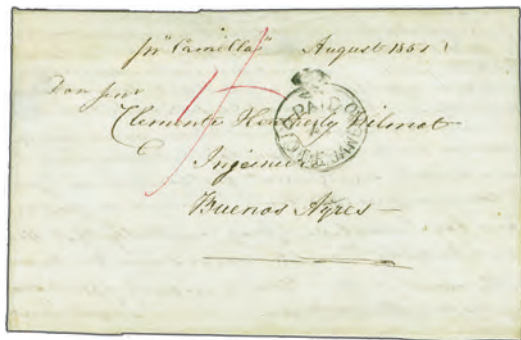 pr "Camilla" August 1851
Don Juan
Clemente Wilmot
Ingenieur
Buenos Ayres
PAID